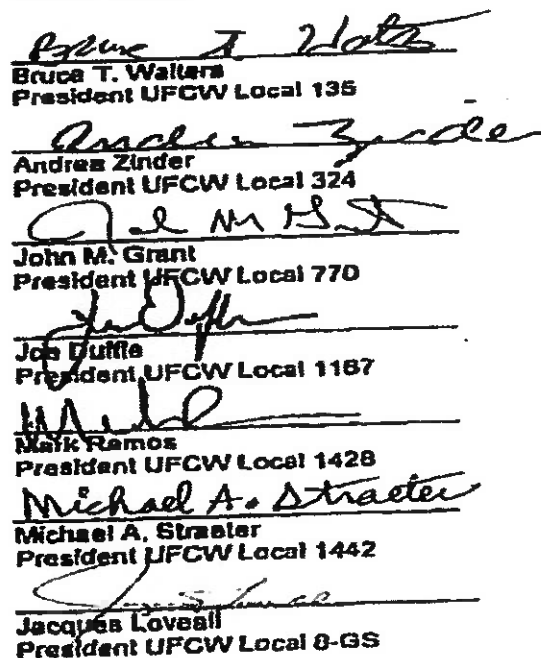 Bruce T. Watts
Bruce T. Walters
President UFCW Local 135
Andrea Zinder
Andrea Zinder
President UFCW Local 324
John M Grant
John M. Grant
President UFCW Local 770
Joe Duffle
President UFCW Local 1167
Mark Ramos
President UFCW Local 1428
Michael A. Straeter
Michael A. Straeter
President UFCW Local 1442
Jacques Loveall
President UFCW Local 8-GS